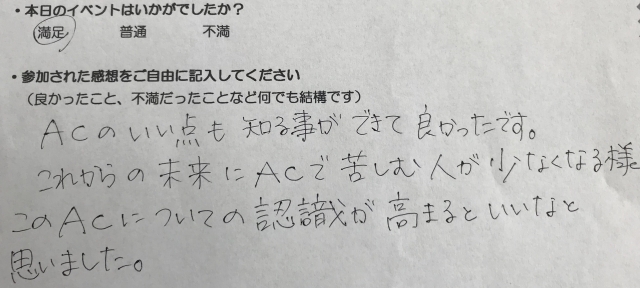 ・本日のイベントはいかがでしたか？
満足 普通 不満
・参加された感想をご自由に記入してください
（良かったこと、不満だったことなど何でも結構です）
ACのいい点も知る事ができて良かったです。
これからの未来にACで苦しむ人が少なくなる様に
このACについての認識が高まるといいなと
思いました。